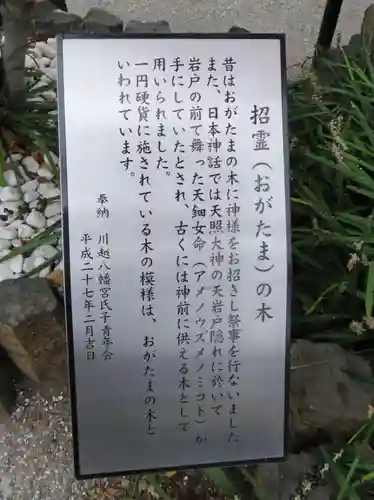 招霊（おがたま）の木
昔はおがたまの木に神様をお招きし祭事を行ないました
また、日本神話では天照大神の天岩戸隠れに於いて
岩戸の前で舞った天鈿女命（アメノウズメノミコト）が
手にしていたとされ、古くには神前に供える木として
用いられました。
一円硬貨に施されている木の模様は、おがたまの木と
いわれています。
奉納 川越八幡宮氏子青年会
平成二十七年二月吉日